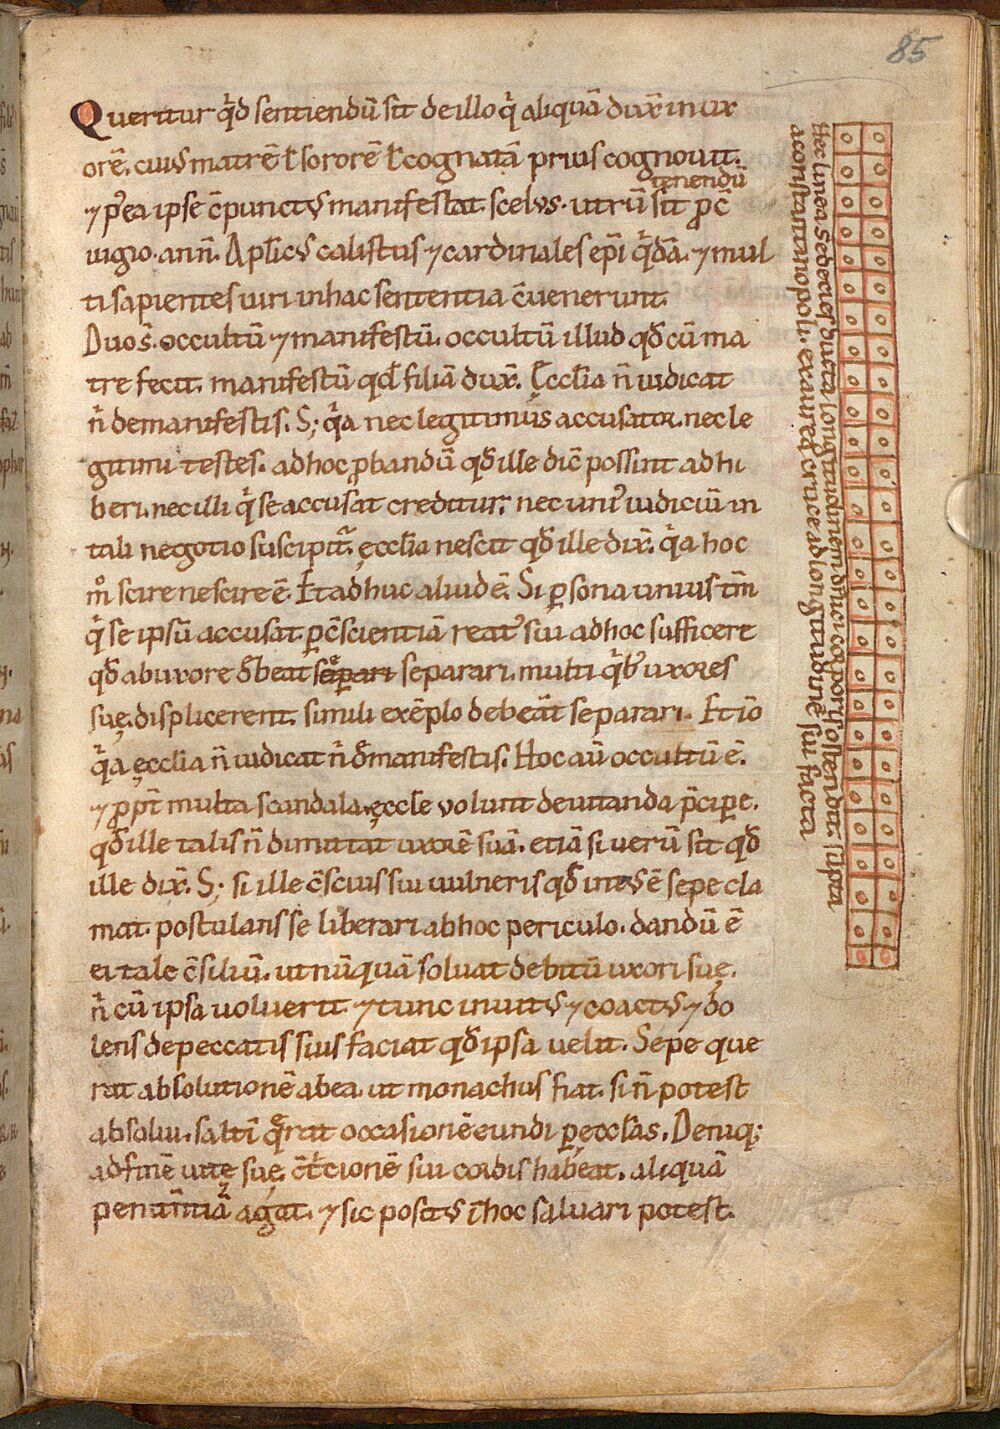 85
Queritur qͥd sentiendū sit de illo qͥ aliquā dux̄ in ux
orē. cuiꝰ matrē ł sororē ł cognatā prius cognouit.
tenendū
⁊ ꝑ ea ipse c̄punctꝰ manifestat scelus. utrū sit ꝓ c̄
iugio. an n̄. Aplicꝰ calistus ⁊ cardinales ep̄i qͥdā. ⁊ mul
ti sapientes uiri in hac sententia c̄uenerunt.
Duo s̄. occultū ⁊ manifestū. occultū illud qđ cū ma
tre fecit. manifestū qđ filiā dux̄. Ęcclia n̄ iudicat
n̄ de manifestis. S; qͥa nec legitimus accusator. nec le
gitimi testes. ad hoc ꝓbandū qđ ille dic̄ possunt adhi
beri. nec illi qͥ se accusat creditur. nec uniꝰ iudiciū in
tali negotio suscipit᷑. ęcclia nescit qđ ille dix̄. qͥa hoc
mͦ scire nescire ē. Et adhuc aliud ē. Si ꝑsona unius tm̄
qͥ se ipsū accusat ꝑ c̄scientiā reatꝰ sui ad hoc sufficeret
qđ ab uxore đbeat separi separari. multi qͥbꝰ uxores
suę displicerent. simili exēplo debeāt separari. Et iō
qͥa ęcclia n̄ iudicat n̄ đ manifestis. Hoc aū occultū ē.
⁊ ꝓpt̄ multa scandala. ęccle uolunt deuitanda p̄cipe.
qđ ille talis n̄ dimittat uxorē suā. etiā si uerū sit qđ
ille dix̄. S; si ille c̄scius sui uulneris qđ intꝰ ē sepe cla
mat. postulans se liberari ab hoc periculo. dandū ē
ei tale c̄siliū. ut nūquā soluat debitū uxori suę.
n̄ cū ipsa uoluerit. ⁊ tunc inuitꝰ ⁊ coactꝰ ⁊ đo
lens de peccatis suis faciat qđ ipsa uelit. Sepe que
rat absolutionē ab ea. ut monachus fiat. si n̄ potest
absolui. saltī qͣrat occasionē eundi ꝑ ęcclas. Deniq;
ad finē uite suę c̄t̄cionē sui cordis habeat. aliquā
penitn̄tiā agat. ⁊ sic positꝰ ī hoc saluari potest.
Hec linea sedecies ducta longitudinem dn̄ici corporis ostendit. sūpta
a constantinopoli. ex aurea cruce ad longitudinē sui facta